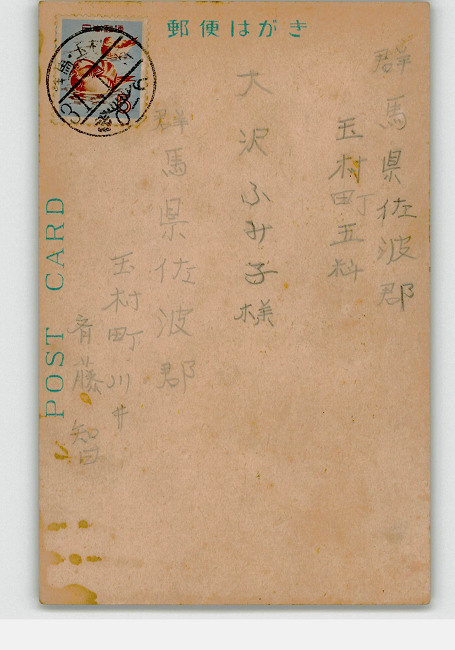 郵便はがき
群馬県佐波郡
玉村町五料
大沢ふみ子様
群馬県佐波郡
玉村町川井
斉藤智
POST CARD
日本郵便
群馬・玉村